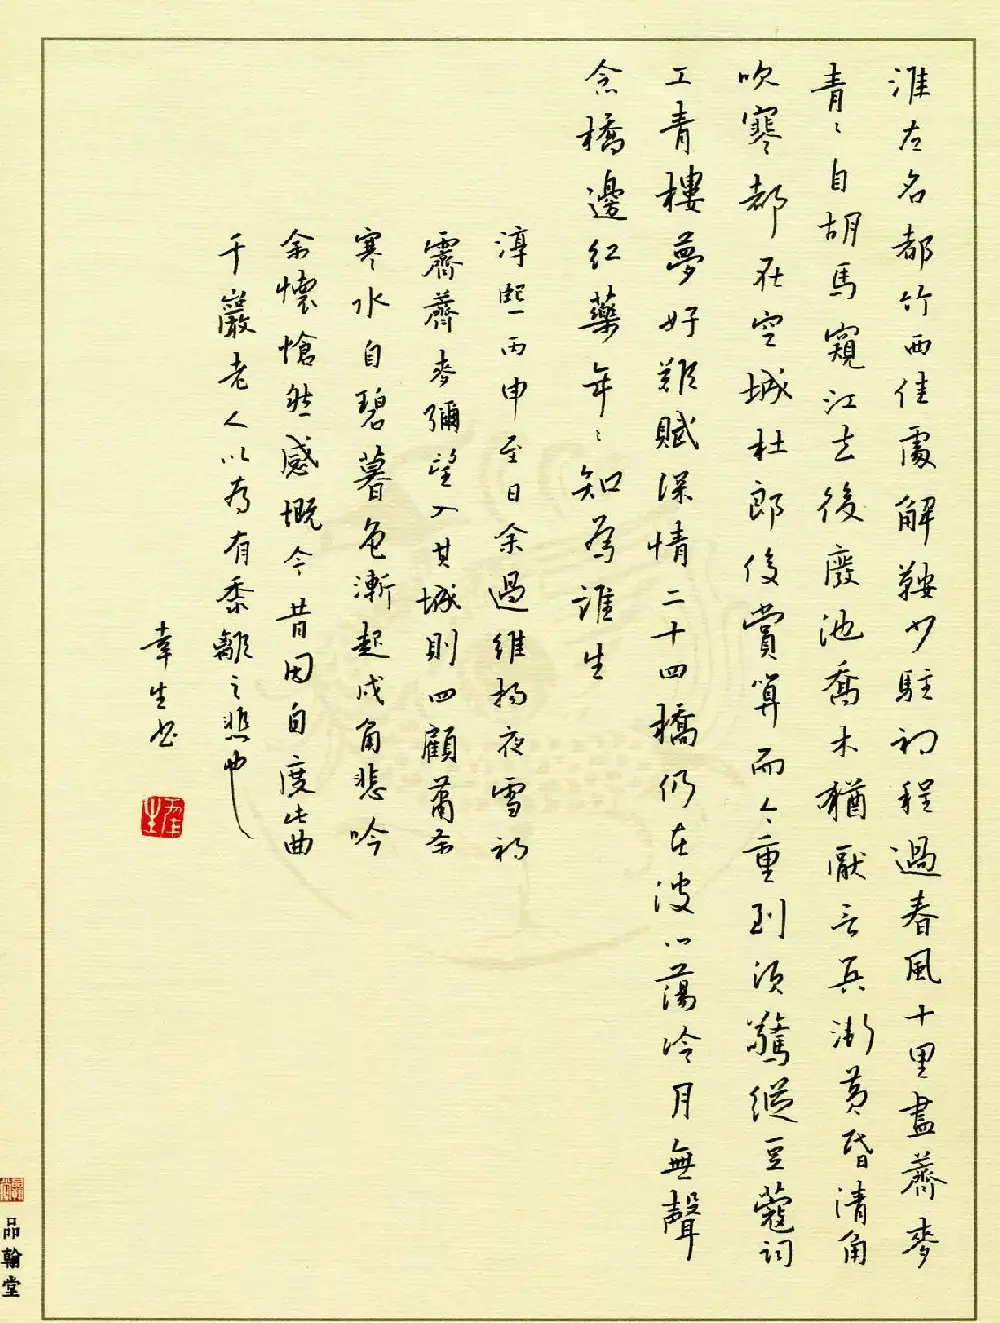 淮左名都竹西佳處解鞍少駐初程過春風十里盡薺麥
青々自胡馬窺江去後廢池喬木猶厭言兵漸黃昏清角
吹寒都在空城杜郎俊賞算而今重到須驚縱豆蔻詞
工青樓夢好難賦深情二十四橋仍在波心蕩冷月無聲
念橋邊紅藥年々知為誰生
淳熙丙申至日余過維揚夜雪初
霽薺麥彌望入其城則四顧蕭條
寒水自碧暮色漸起戍角悲吟
余懷愴然感慨今昔因自度此曲
千巖老人以為有黍離之悲也
幸生書
品翰堂